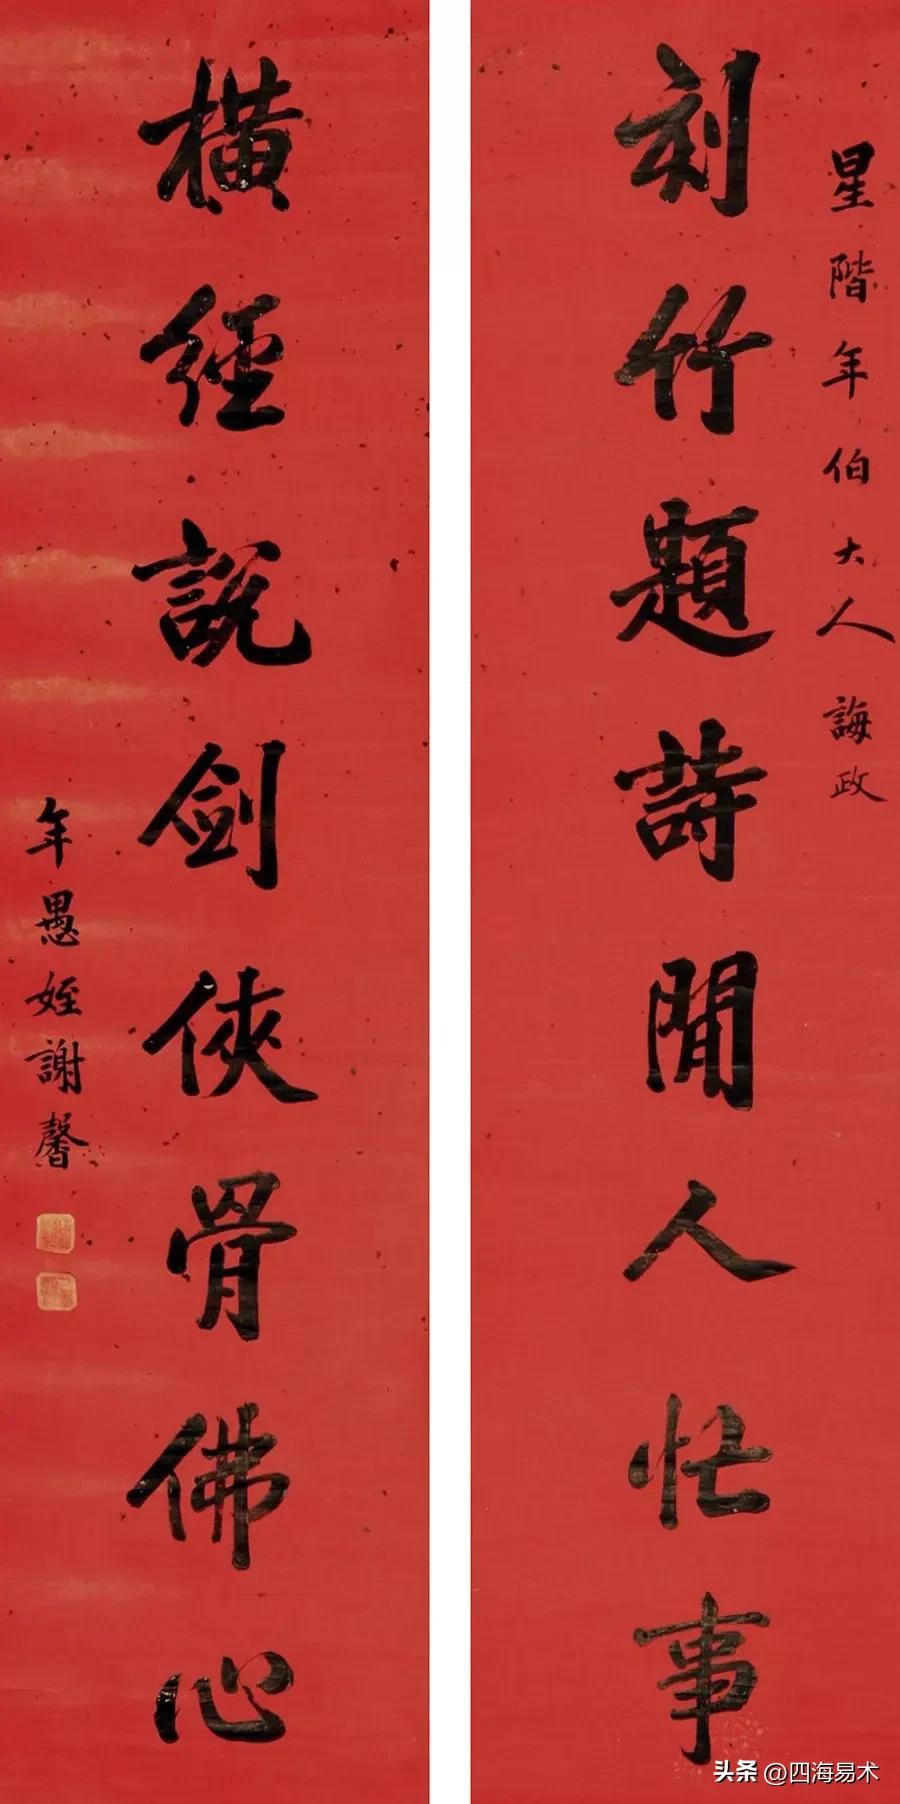 星階年伯大人誨政
刻竹題詩閒人忙事
橫經說劍俠骨佛心
年愚姪謝馨
头条 @四海易术